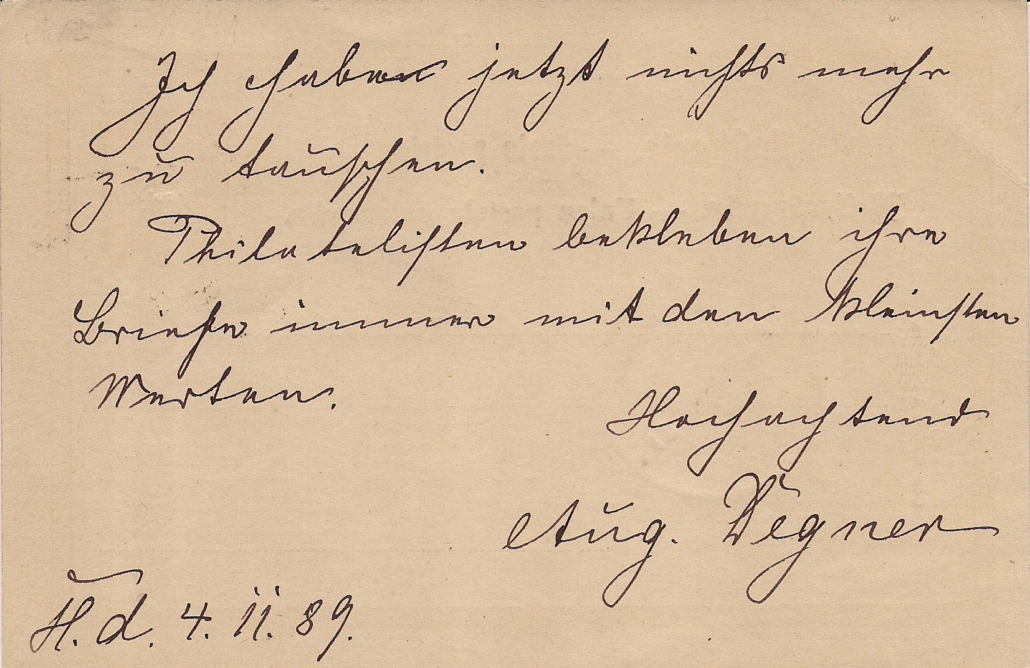 Ich habe jetzt nichts mehr
zu tauschen.
Philatelisten bekleben ihre
Briefe immer mit den kleinsten
Werten.
Hochachtend
Aug. Degner
H. d. 4. 11. 89.